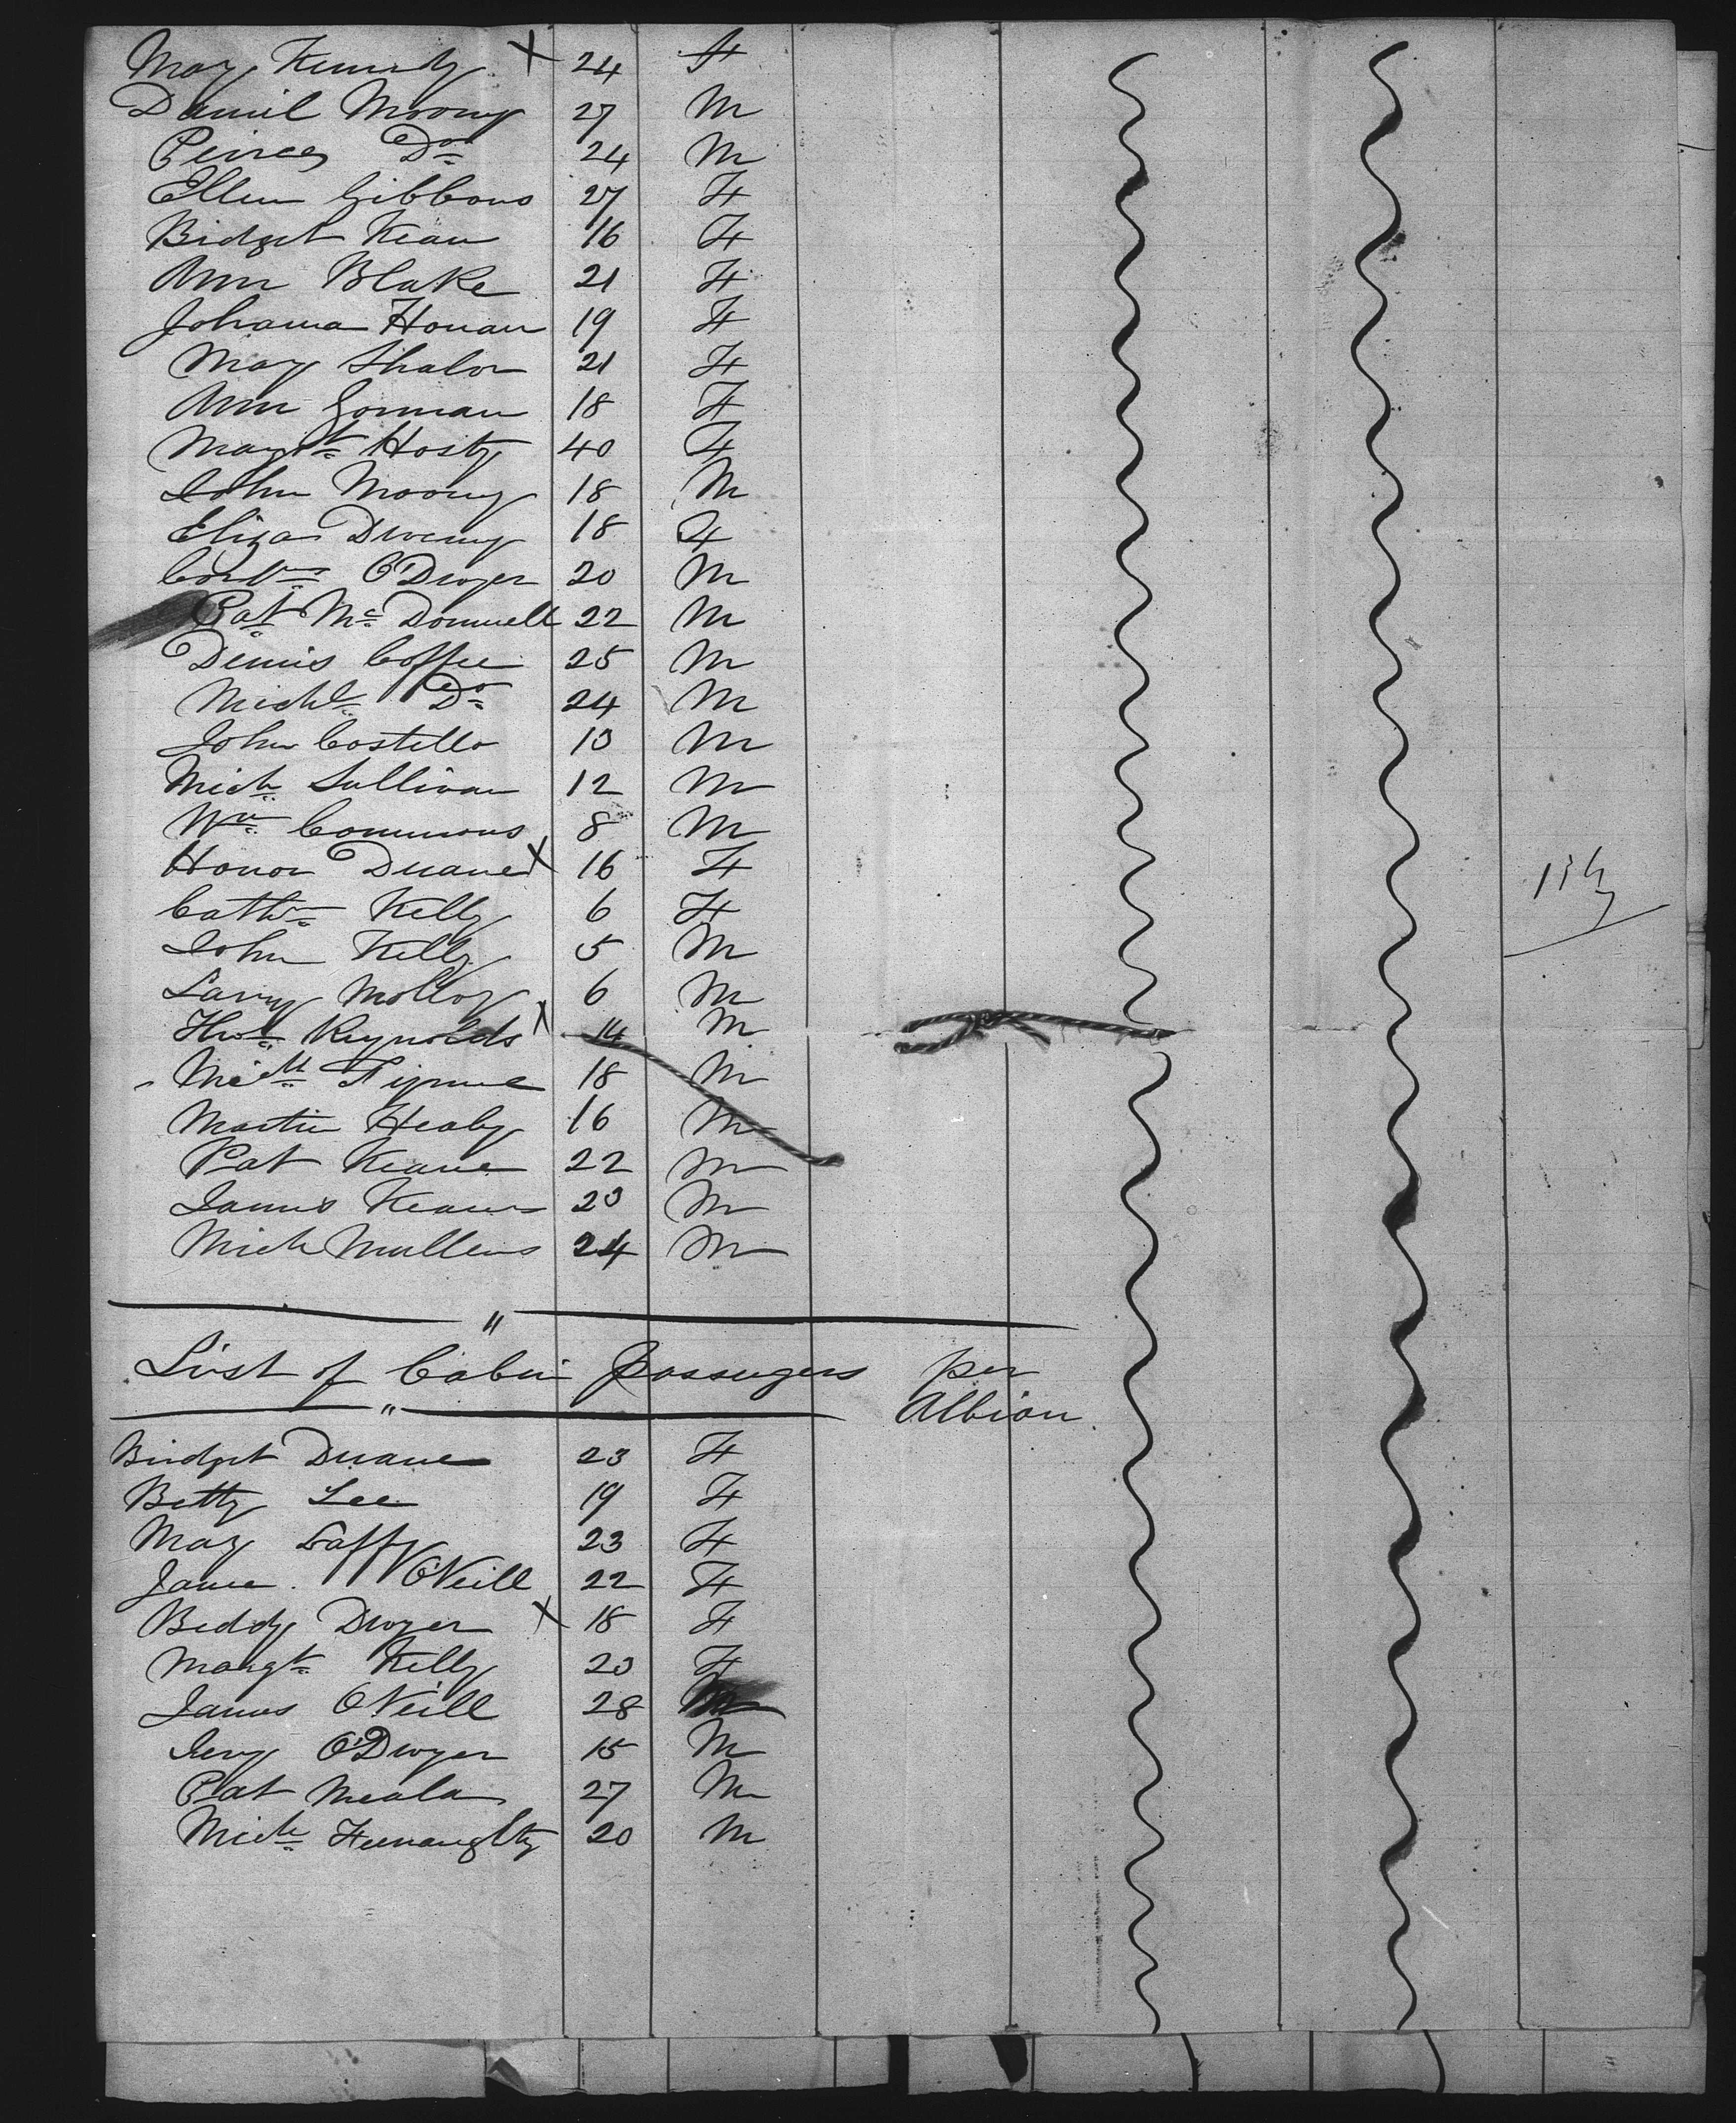 Mary Kennedy X 24 F
Daniel Moony 27 M
Peirce Do 24 M
Ellen Gibbons 27 F
Bidget Kean 16 F
Ann Blake 21 F
Johanna Honan 19 F
Mary 21 F
Ann Gorman 18 F
Margt Hosty 40 F
John Moony 18 M
Eliza 18 F
O'Dwyer 20 M
Pat Mc Donnell 22 M
Dennis Coffee 25 M
Michl Do 24 M
John Costello 10 M
Mich Sullivan 12 M
Wm Commons 8 M
Honor Duane X 16 F
Cathn Kelly 6 F
John Kelly 5 M
Larry Molloy 6 M
Thos Reynolds X 14 M
Michl 18 M
Martin Healy 16 M
Pat Keane 22 M
James Keane 20 M
Mich Mullens 24 M
"
List of Cabin passengers per
" Albion
Bridget Duane 23 F
Betty Lee 19 F
Mary Laffy 23 F
Jane O'Neill 22 F
Biddy Dwyer X 18 F
Margt Kelly 20 F
James O'Neill 28 M
Jery O'Dwyer 15 M
Pat Meala 27 M
Mich Feenaughty 20 M